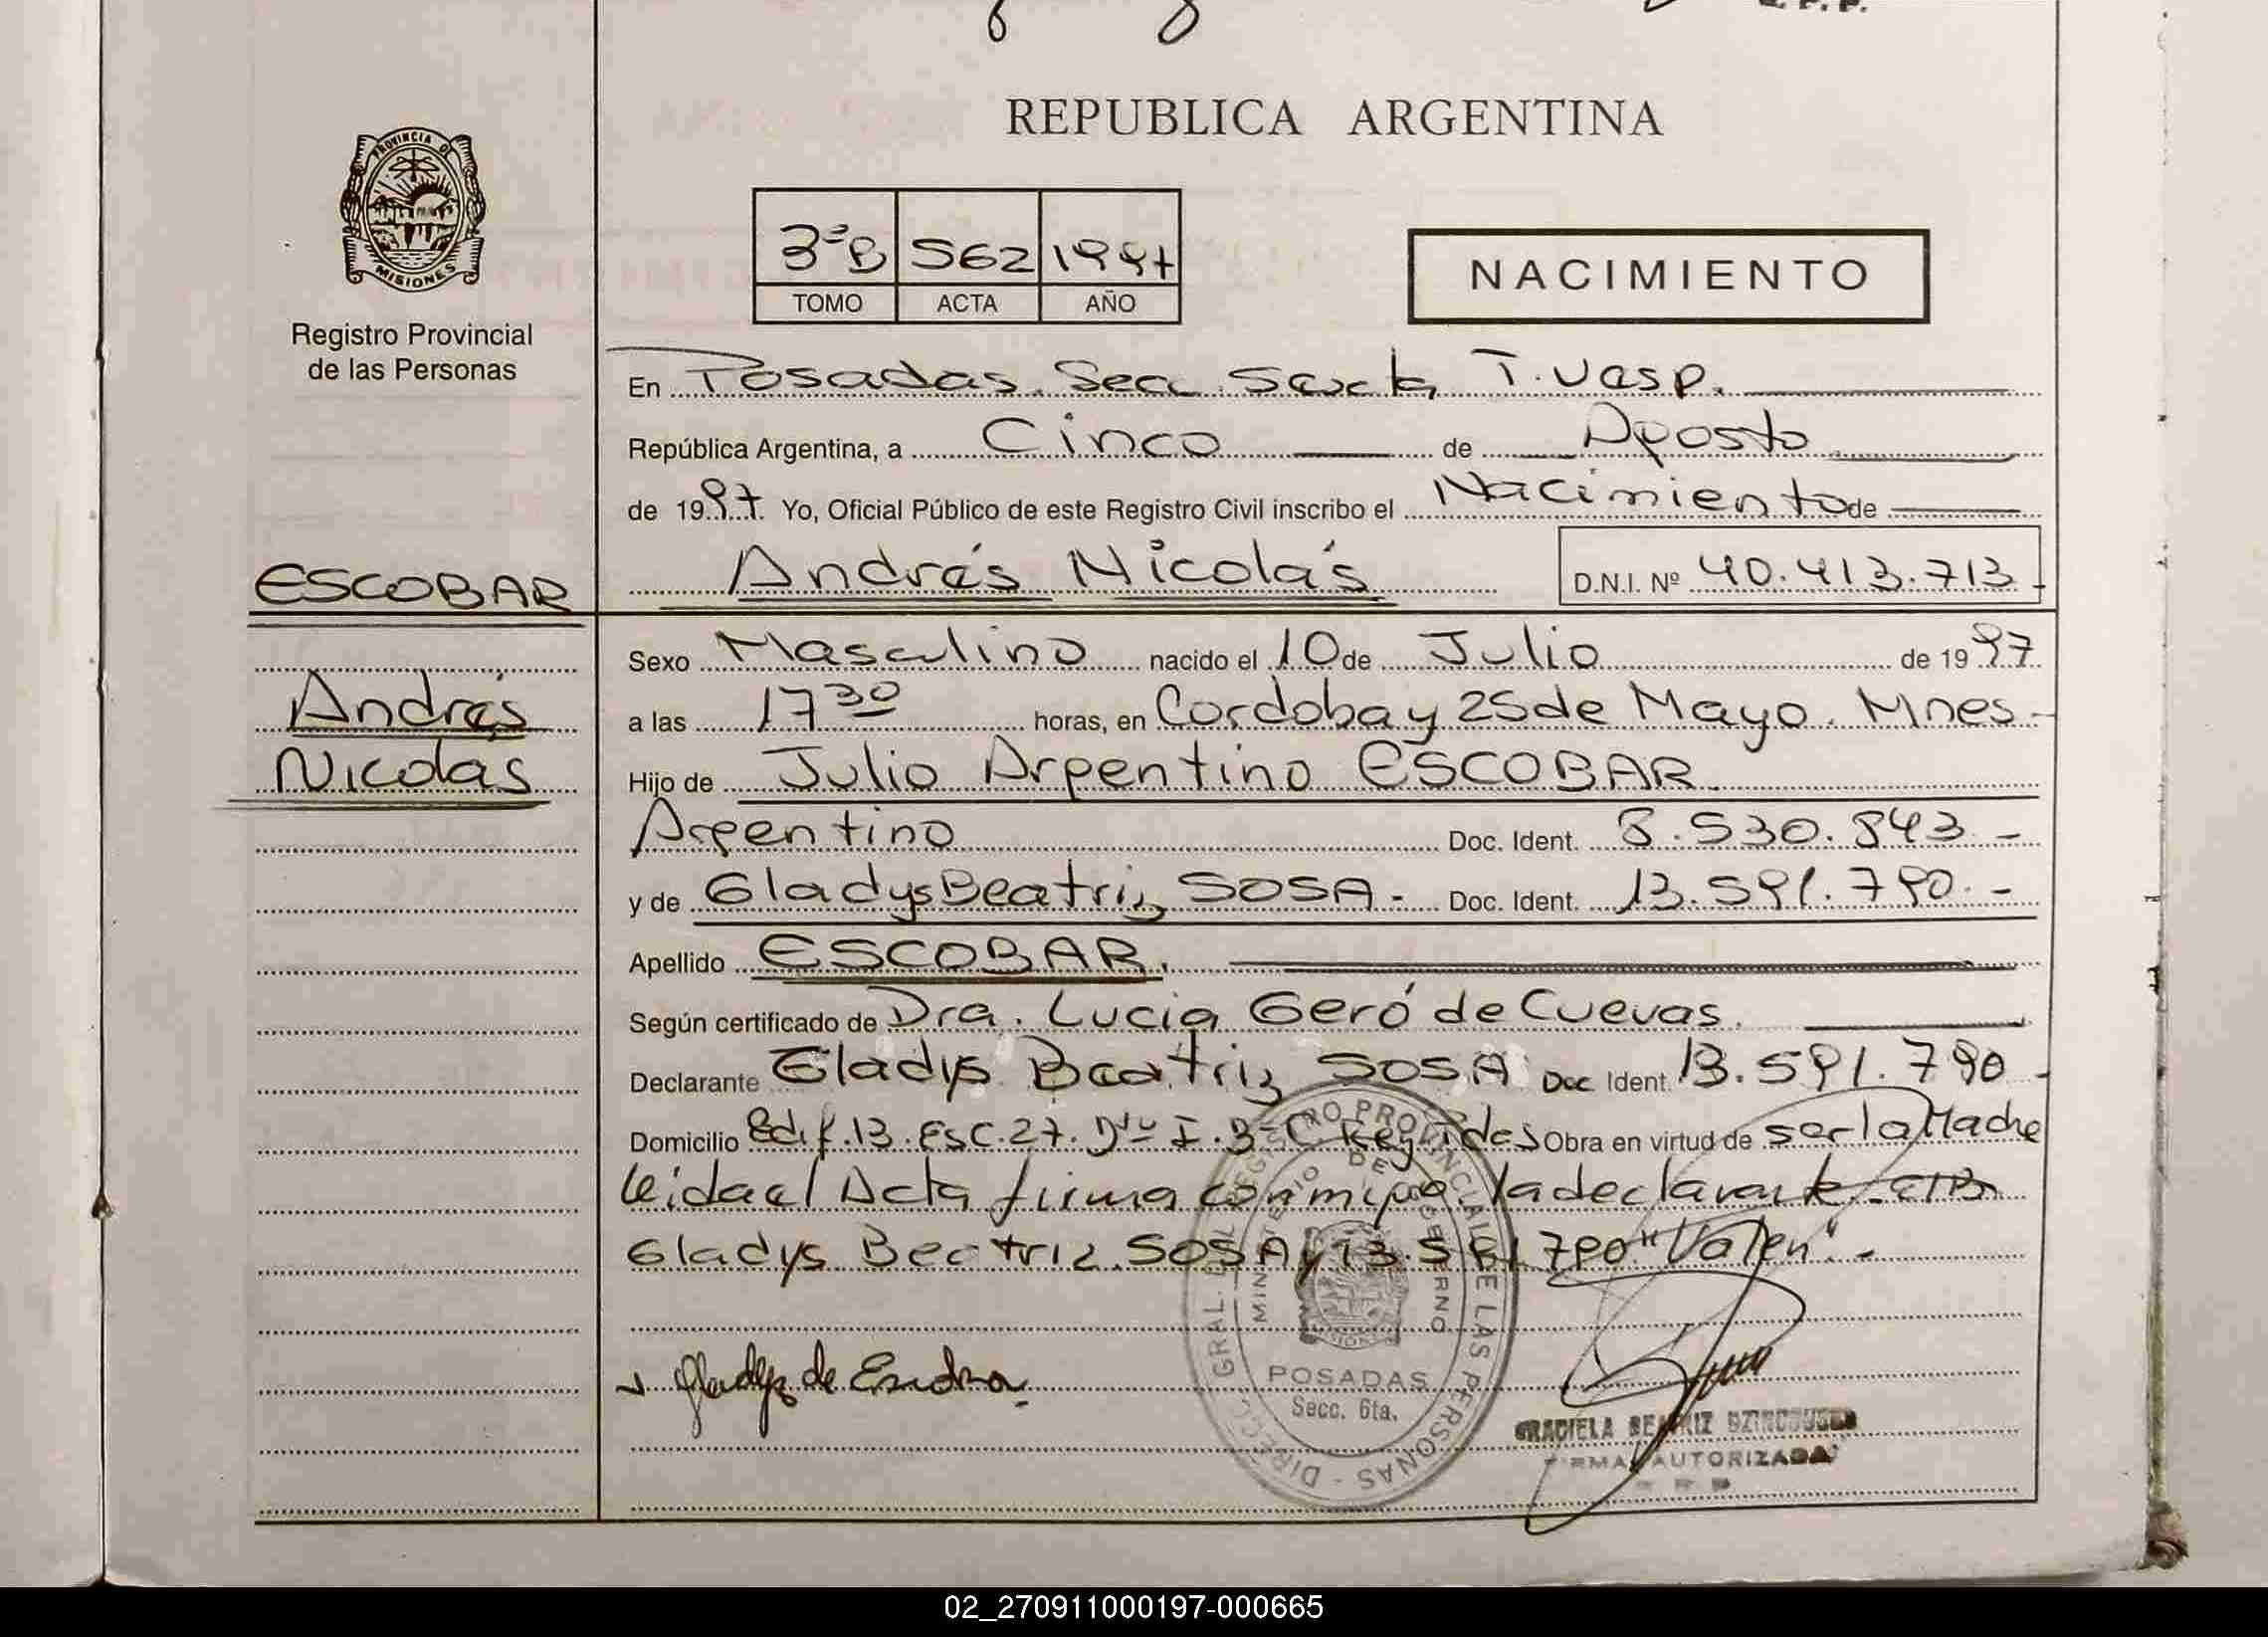 REPUBLICA ARGENTINA
PROVINCIA DE
MISIONES
Registro Provincial
de las Personas
3ºB 562 1997
TOMO ACTA AÑO
NACIMIENTO
En Posadas. Secc. Sexta, T. Vesp.
República Argentina, a Cinco de Agosto
de 1997. Yo, Oficial Público de este Registro Civil inscribo el Nacimiento de
Andrés Nicolás D.N.I. Nº 40.413.713-
ESCOBAR
Andrés
Nicolás
Sexo Masculino nacido el 10 de Julio de 1997
a las 17 30 horas, en Cordoba y 25 de Mayo. Mnes-
Hijo de Julio Argentino ESCOBAR.
Argentino Doc. Ident. 8.530.843-
y de Gladys Beatriz SOSA- Doc. Ident. 13.591.790.-
Apellido ESCOBAR.
Según certificado de Dra. Lucia Geró de Cuevas.
Declarante Gladys Beatriz SOSA Doc Ident. 13.591.790-
Domicilio Edif.13.Esc.27. Dto I.3-C Obra en virtud de ser la Madre
leida el Acta firma conmigo la declarante-
Gladys Beatriz SOSA y 13.591.790 "Valen".-
Gladys de
DIRECC. GRAL. DEL REGISTRO PROVINCIAL DE LAS PERSONAS
MINISTERIO DE GOBIERNO
POSADAS
Secc. 6ta.
GRACIELA BEATRIZ
FIRMA AUTORIZADA
02_270911000197-000665